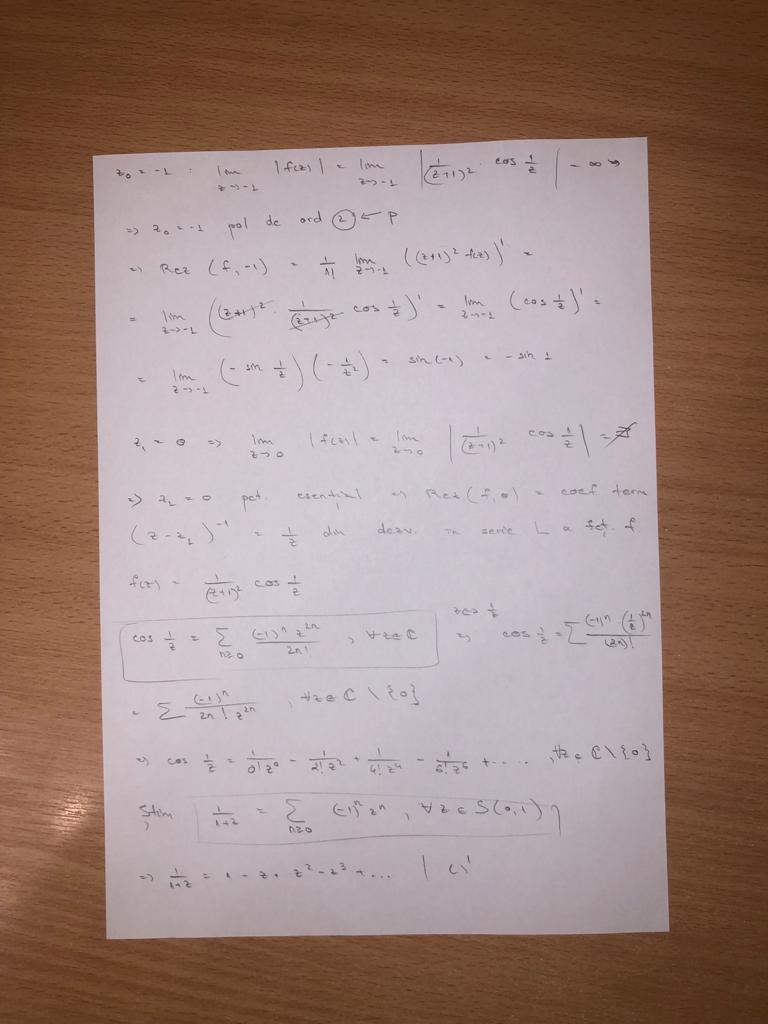 z₀ = -1 : lim_{z→-1} |f(z)| = lim_{z→-1} | 1/(z+1)² · cos 1/z | = ∞ ⇒
⇒ z₀ = -1 pol de ord ② ← p
⇒ Rez (f, -1) = 1/1! lim_{z→-1} ((z+1)² f(z))' =
= lim_{z→-1} ((z+1)² · 1/(z+1)² cos 1/z)' = lim_{z→-1} (cos 1/z)' =
= lim_{z→-1} (- sin 1/z) (- 1/z²) = sin(-1) = - sin 1
z₁ = 0 ⇒ lim_{z→0} |f(z)| = lim_{z→0} | 1/(z+1)² cos 1/z | = ∄
⇒ z₁ = 0 pct. esențial ⇒ Rez(f, 0) = coef term
(z - z₁)⁻¹ = 1/z din dezv. în serie L a fct. f.
f(z) = 1/(z+1)² cos 1/z
cos 1/z = Σ_{n≥0} (-1)ⁿ z²ⁿ / 2n! , ∀ z ∈ ℂ z→ 1/z ⇒ cos 1/z = Σ (-1)ⁿ · (1/z)²ⁿ / (2n)!
= Σ (-1)ⁿ / 2n! z²ⁿ , ∀ z ∈ ℂ \ {0}
⇒ cos 1/z = 1/0!z⁰ - 1/2!z² + 1/4!z⁴ - 1/6!z⁶ + .... , ∀z ∈ ℂ \ {0}
Știm 1/1+z = Σ_{n≥0} (-1)ⁿ zⁿ , ∀ z ∈ S(0,1)
⇒ 1/1+z = 1 - z + z² - z³ + ... | ( )'